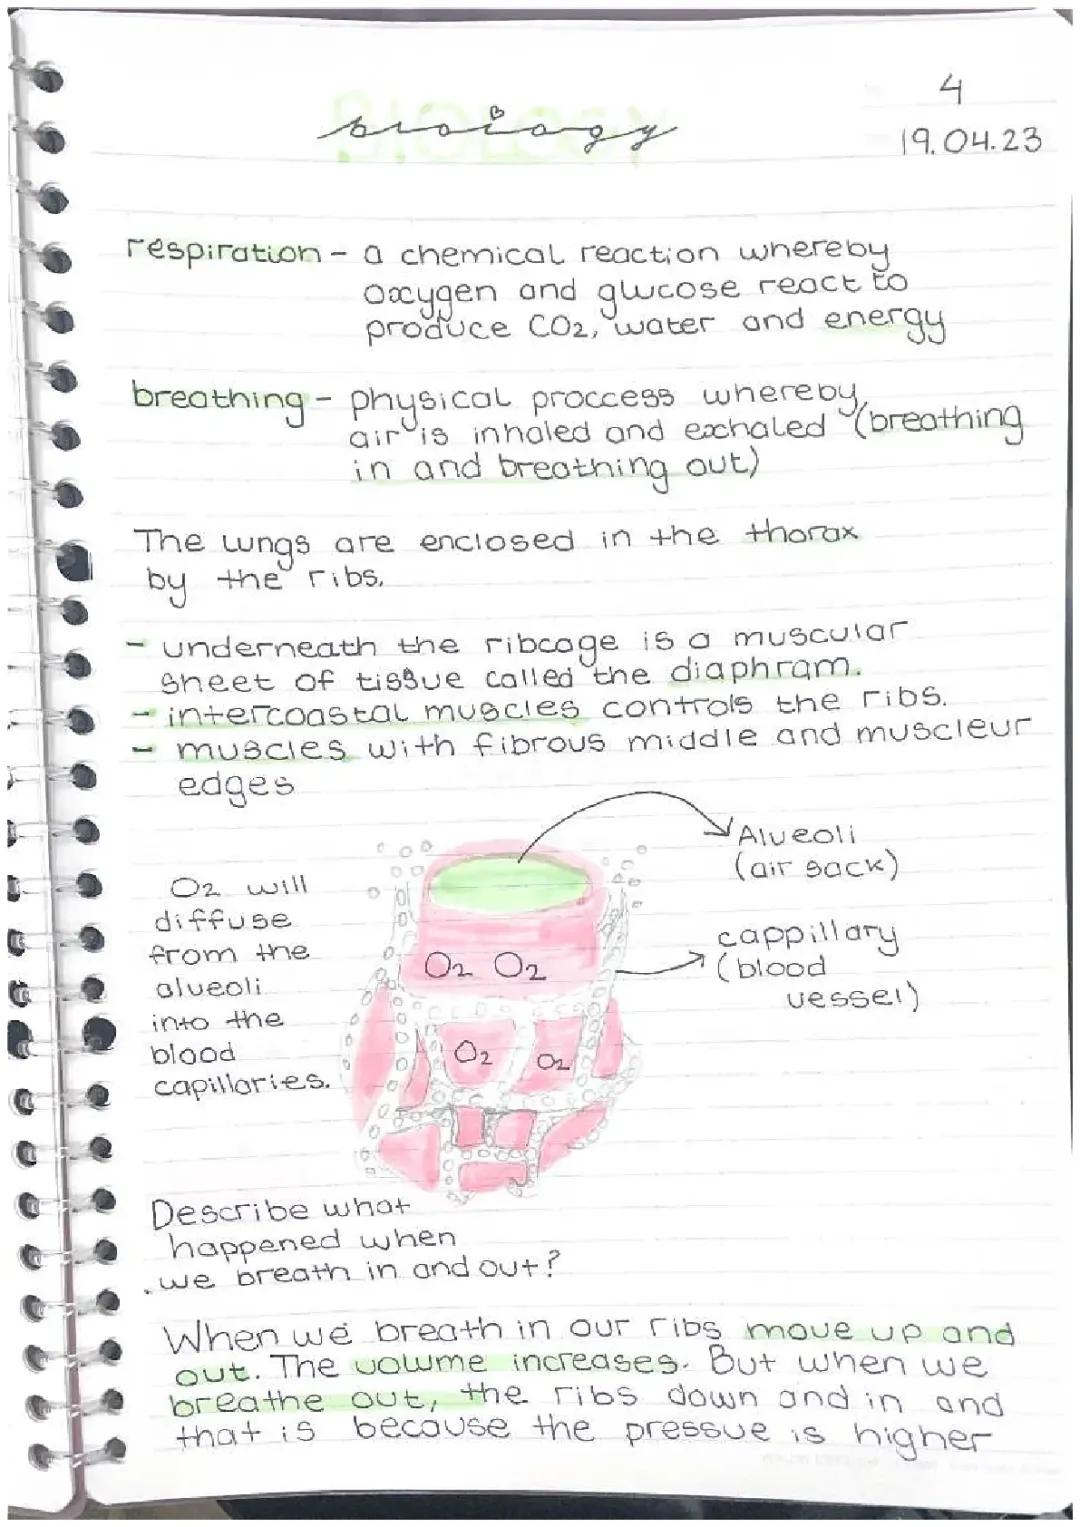 4
biology
BIOLOGY
19.04.23
respiration - a chemical reaction whereby
oxygen and glucose react to
produce CO2, water and energy
breathing - physical proccess whereby
air is inhaled and exhaled (breathing
in and breathing out)
The lungs are enclosed in the thorax
by the ribs.
- underneath the ribcage is a muscular
sheet of tissue called the diaphram.
- intercoastal muscles controls the ribs.
- muscles with fibrous middle and muscleur
edges
Alveoli
(air sack)
cappillary
(blood
vessel)
O2 will
diffuse
from the
alveoli
into the
blood
capillaries.
O2 O2
O2 O2
Describe what
happened when
we breath in and out?
When we breath in our ribs move up and
out. The volume increases. But when we
breathe out, the ribs down and in and
that is because the pressue is higher